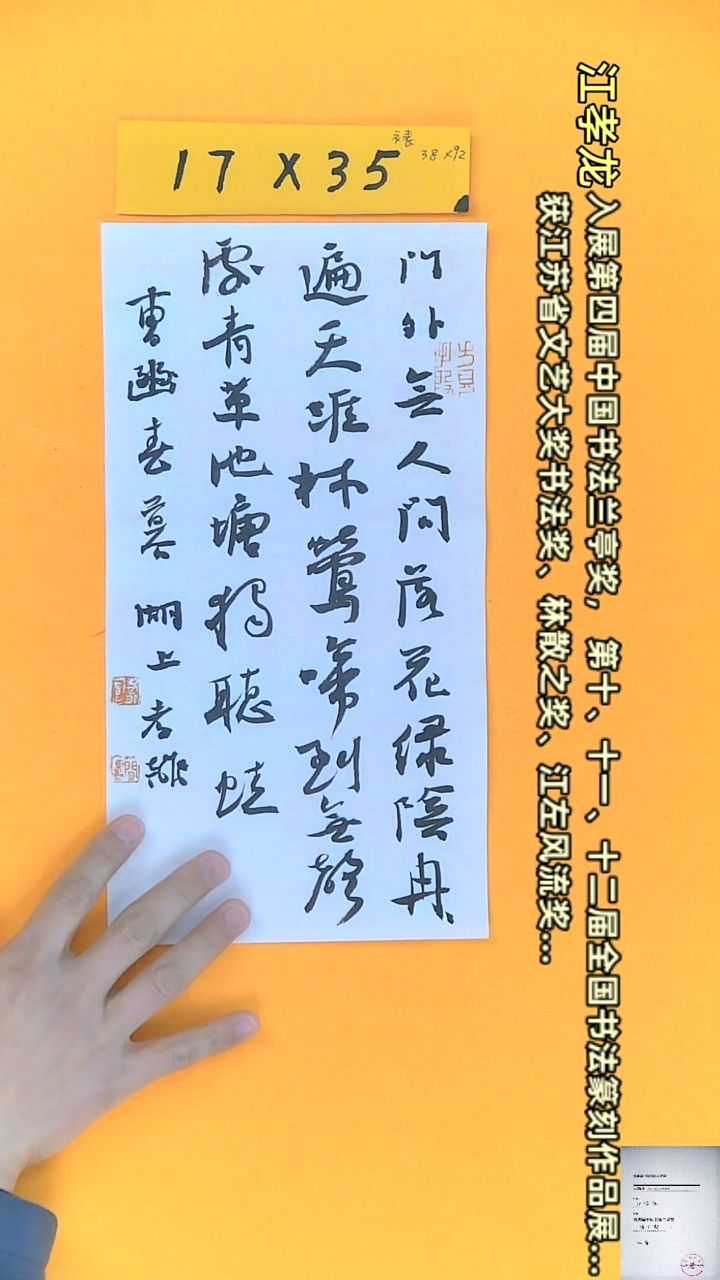 17 X 35
裱
38 X92
门外無人问落花绿陰冉、
遍天涯林莺啼到無声
處青草池塘獨聽蛙
曹豳春暮 湖上孝龍
江孝龙 入展第四届中国书法兰亭奖，第十、十一、十二届全国书法篆刻作品展...
获江苏省文艺大奖书法奖、林散之奖、江左风流奖...